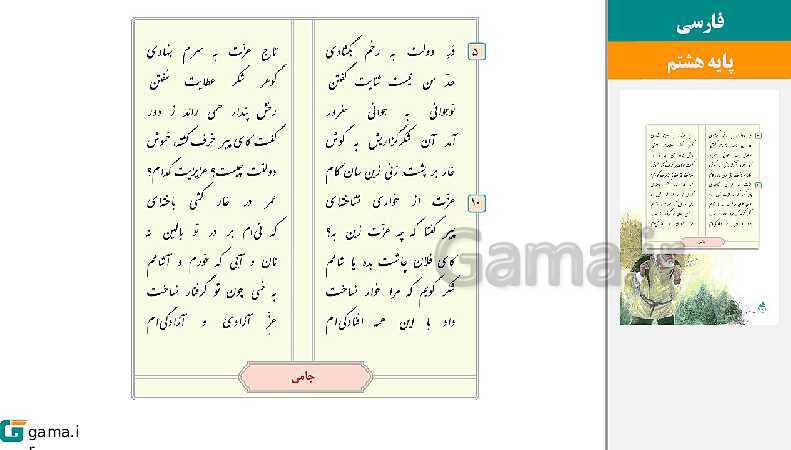 فارسی
پایه هشتم
۵ دَرِ دولت به رخم بگشادی تاج عزّت به سرم بنهادی
حدّ من نیست ثنایت گفتن گوهر شکر عطایت سُفتن
نوجوانی به جوانی مغرور رخش پندار همی راند ز دور
آمد آن شکرگزاریش به گوش گفت کای پیر خرف گشته، خموش
خار بر پشت، زنی زین سان گام دولتت چیست؟ عزیزیت کدام؟
۱۰ عزّت از خواری نشناخته‌ای عمر در خار کشی باخته‌ای
پیر گفتا که چه عزّت زین به؟ که نی‌ام بر در تو بالین نه
کای فلان چاشت بده یا شامم نان و آبی که خورم و آشامم
شکر گویم که مرا خوار نساخت به خسی چون تو گرفتار نساخت
داد با این همه افتادگی‌ام عزّ آزادی و آزادگی‌ام
جامی
Gama.ir
gama.i
r